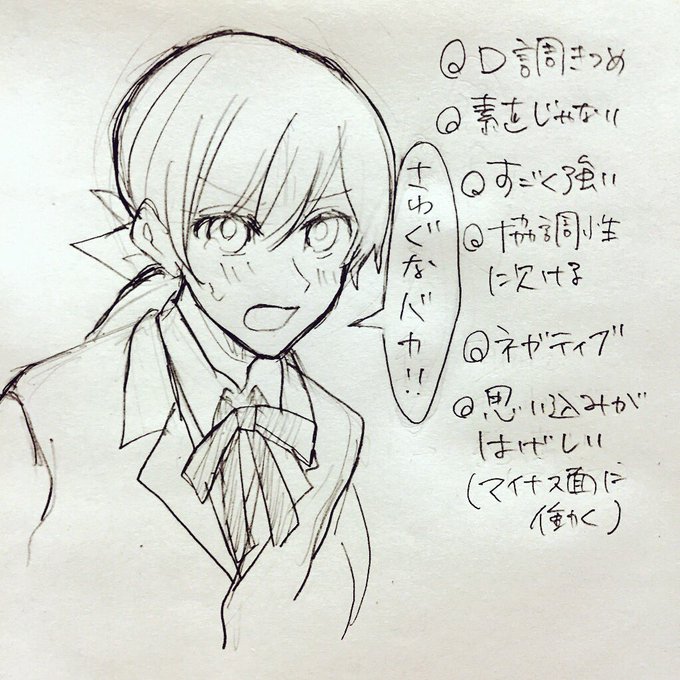 ◎口調きつめ
◎素直じゃない
◎すごく強い
◎協調性
に欠ける
◎ネガティブ
◎思い込みが
はげしい
(マイナス面に
働く)
さわぐなバカ!!